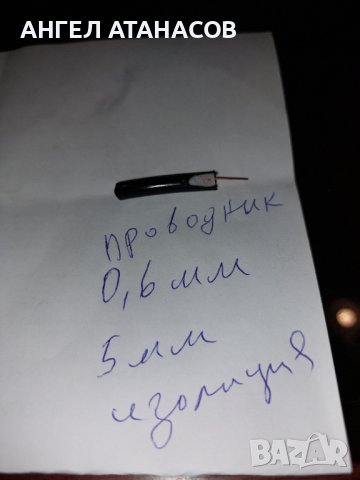 АНГЕЛ АТАНАСОВ
проводник
0,6мм
5мм
изолиция
BAZAR